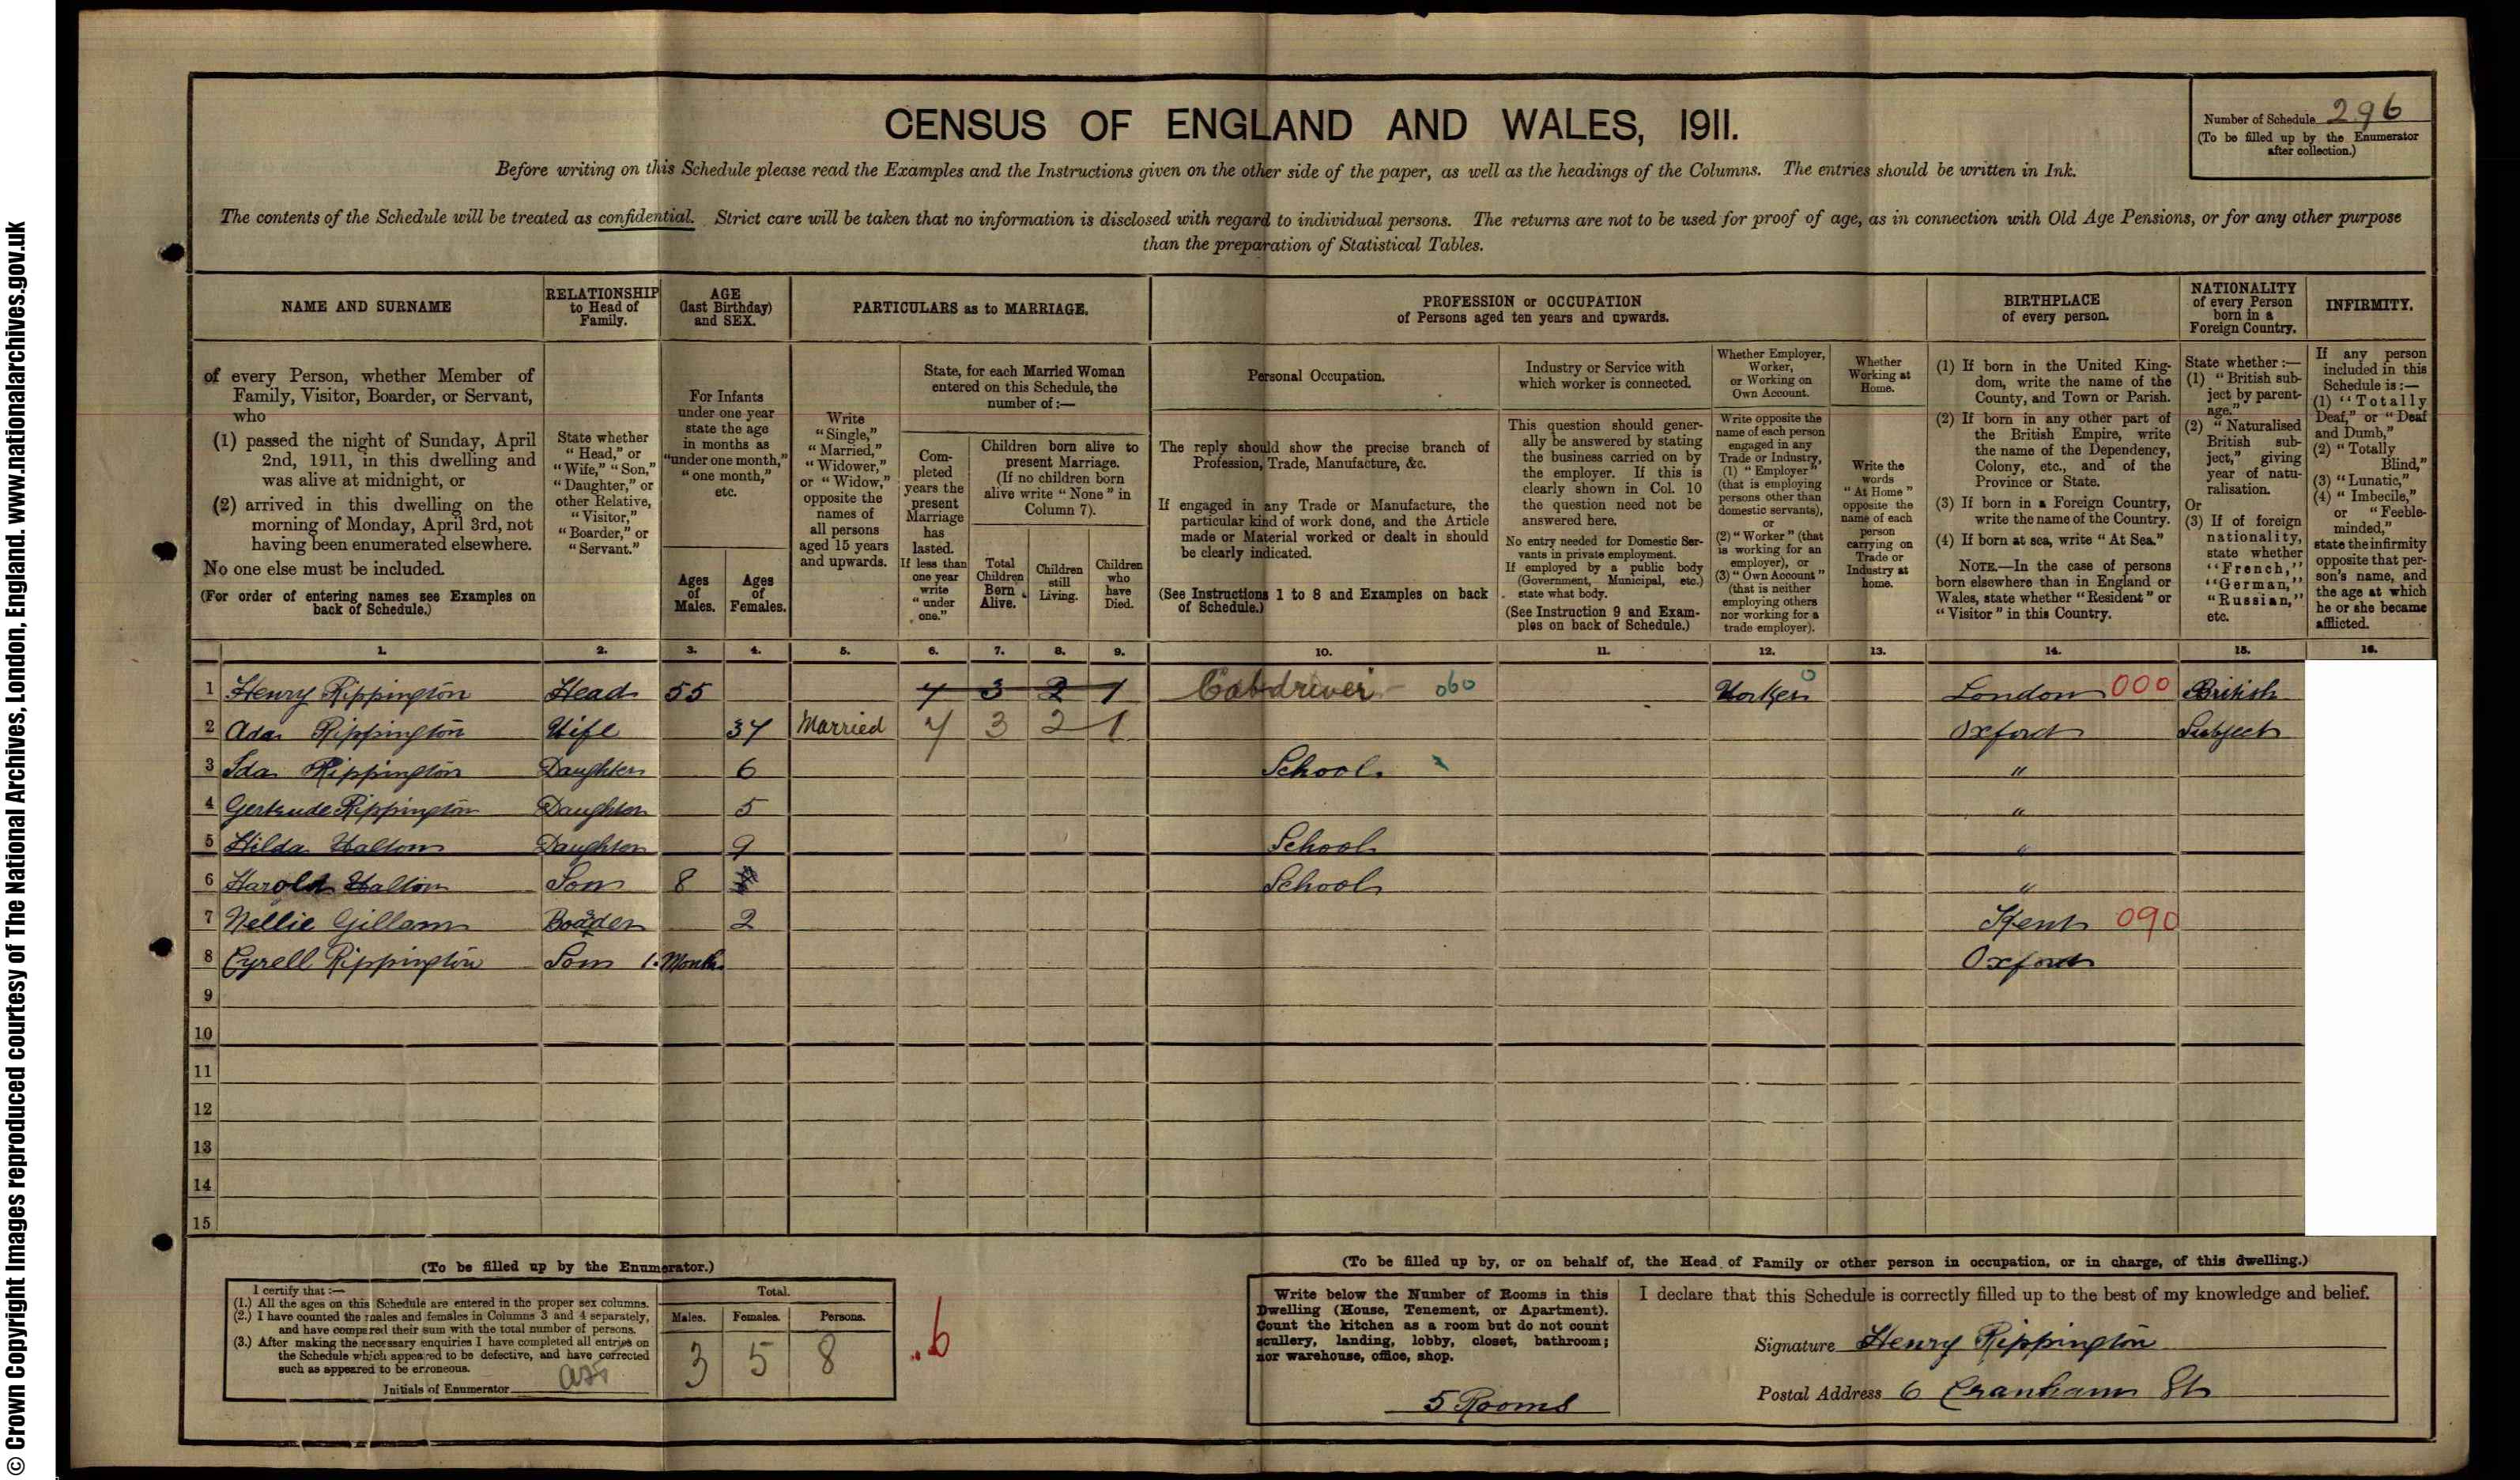 © Crown Copyright Images reproduced courtesy of The National Archives, London, England. www.nationalarchives.gov.uk
CENSUS OF ENGLAND AND WALES, 1911.
Number of Schedule 296
(To be filled up by the Enumerator after collection.)
Before writing on this Schedule please read the Examples and the Instructions given on the other side of the paper, as well as the headings of the Columns. The entries should be written in Ink.
The contents of the Schedule will be treated as confidential. Strict care will be taken that no information is disclosed with regard to individual persons. The returns are not to be used for proof of age, as in connection with Old Age Pensions, or for any other purpose
than the preparation of Statistical Tables.
NAME AND SURNAME
RELATIONSHIP to Head of Family.
AGE (last Birthday) and SEX.
PARTICULARS as to MARRIAGE.
PROFESSION or OCCUPATION
of Persons aged ten years and upwards.
BIRTHPLACE of every person.
NATIONALITY of every Person born in a Foreign Country.
INFIRMITY.
of every Person, whether Member of
Family, Visitor, Boarder, or Servant,
who
(1) passed the night of Sunday, April
2nd, 1911, in this dwelling and
was alive at midnight, or
(2) arrived in this dwelling on the
morning of Monday, April 3rd, not
having been enumerated elsewhere.
No one else must be included.
(For order of entering names see Examples on
back of Schedule.)
State whether
"Head," or
"Wife," "Son,"
"Daughter," or
other Relative,
"Visitor,"
"Boarder," or
"Servant."
For Infants
under one year
state the age
in months as
"under one month,"
"one month,"
etc.
Ages of Males.
Ages of Females.
Write
"Single,"
"Married,"
"Widower,"
or "Widow,"
opposite the
names of
all persons
aged 15 years
and upwards.
State, for each Married Woman
entered on this Schedule, the
number of:—
Completed
years the
present
Marriage
has
lasted.
If less than
one year
write
"under
one."
Children born alive to
present Marriage.
(If no children born
alive write "None" in
Column 7).
Total Children Born Alive.
Children still Living.
Children who have Died.
Personal Occupation.
The reply should show the precise branch of
Profession, Trade, Manufacture, &c.
If engaged in any Trade or Manufacture, the
particular kind of work done, and the Article
made or Material worked or dealt in should
be clearly indicated.
(See Instructions 1 to 8 and Examples on back
of Schedule.)
Industry or Service with
which worker is connected.
This question should gener-
ally be answered by stating
the business carried on by
the employer. If this is
clearly shown in Col. 10
the question need not be
answered here.
No entry needed for Domestic Ser-
vants in private employment.
If employed by a public body
(Government, Municipal, etc.)
state what body.
(See Instruction 9 and Exam-
ples on back of Schedule.)
Whether Employer,
Worker,
or Working on
Own Account.
Write opposite the
name of each person
engaged in any
Trade or Industry,
(1) "Employer"
(that is employing
persons other than
domestic servants),
or
(2) "Worker" (that
is working for an
employer), or
(3) "Own Account"
(that is neither
employing others
nor working for a
trade employer).
Whether
Working at
Home.
Write the
words
"At Home"
opposite the
name of each
person
carrying on
Trade or
Industry at
home.
(1) If born in the United King-
dom, write the name of the
County, and Town or Parish.
(2) If born in any other part of
the British Empire, write
the name of the Dependency,
Colony, etc., and of the
Province or State.
(3) If born in a Foreign Country,
write the name of the Country.
(4) If born at sea, write "At Sea."
NOTE.—In the case of persons
born elsewhere than in England or
Wales, state whether "Resident" or
"Visitor" in this Country.
State whether :—
(1) "British sub-
ject by parent-
age."
(2) "Naturalised
British sub-
ject," giving
year of natu-
ralisation.
Or
(3) If of foreign
nationality,
state whether
"French,"
"German,"
"Russian,"
etc.
If any person
included in this
Schedule is :—
(1) "Totally
Deaf," or "Deaf
and Dumb,"
(2) "Totally
Blind,"
(3) "Lunatic,"
(4) "Imbecile,"
or "Feeble-
minded,"
state the infirmity
opposite that per-
son's name, and
the age at which
he or she became
afflicted.
1. 2. 3. 4. 5. 6. 7. 8. 9. 10. 11. 12. 13. 14. 15. 16.
1 Henry Rippington Head 55 7 3 2 1 Cabdriver 060 Worker 0 London 000 British
2 Ada Rippington Wife 37 Married 7 3 2 1 Oxford Subject
3 Ida Rippington Daughter 6 School "
4 Gertrude Rippington Daughter 5 "
5 Hilda Halton Daughter 9 School "
6 Harold Halton Son 8 School "
7 Nellie Gillam Boarder 2 Kent 090
8 Cyrell Rippington Son 1. Month Oxford
9
10
11
12
13
14
15
(To be filled up by the Enumerator.)
I certify that :—
(1.) All the ages on this Schedule are entered in the proper sex columns.
(2.) I have counted the males and females in Columns 3 and 4 separately,
and have compared their sum with the total number of persons.
(3.) After making the necessary enquiries I have completed all entries on
the Schedule which appeared to be defective, and have corrected
such as appeared to be erroneous.
Initials of Enumerator
Total.
Males. Females. Persons.
3 5 8
6
(To be filled up by, or on behalf of, the Head of Family or other person in occupation, or in charge, of this dwelling.)
Write below the Number of Rooms in this
Dwelling (House, Tenement, or Apartment).
Count the kitchen as a room but do not count
scullery, landing, lobby, closet, bathroom;
nor warehouse, office, shop.
5 Rooms
I declare that this Schedule is correctly filled up to the best of my knowledge and belief.
Signature Henry Rippington
Postal Address 6 Cranham St